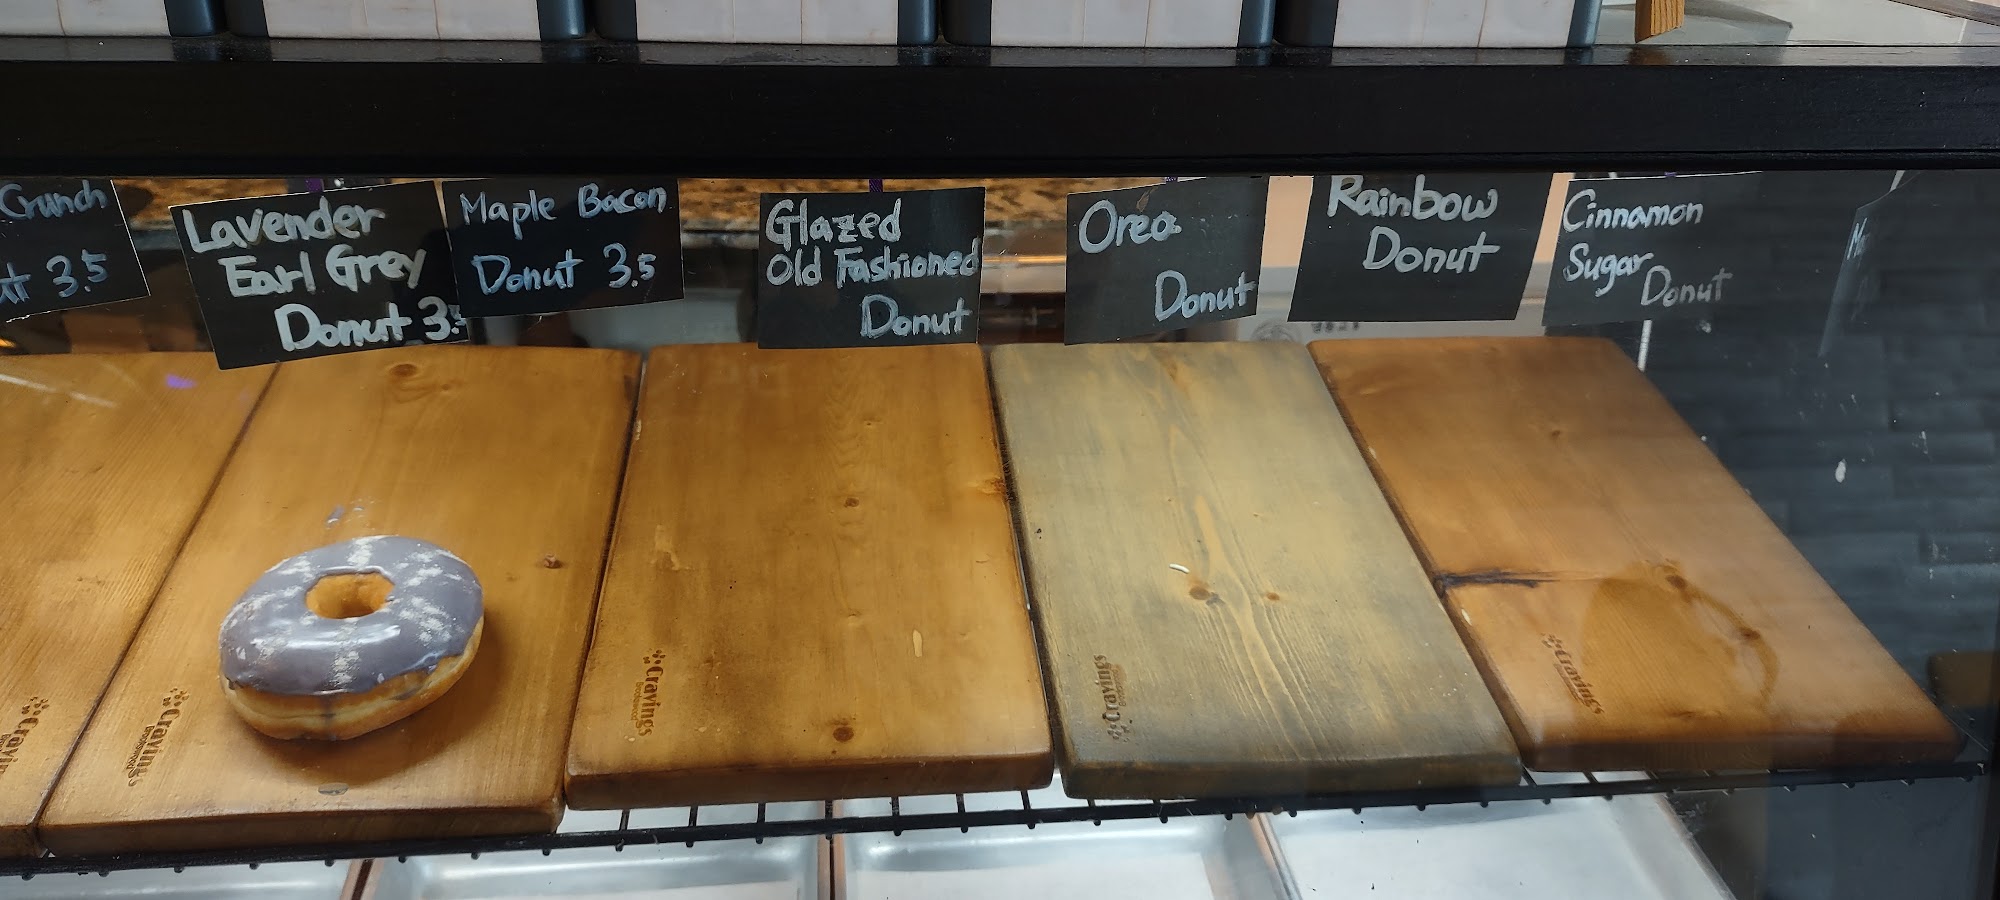 Crunch
3.5
Lavender
Earl Grey
Donut 3.5
Maple Bacon
Donut 3.5
Glazed
Old Fashioned
Donut
Oreo
Donut
Rainbow
Donut
Cinnamon
Sugar
Donut
Cravings
Cravings
Cravings
Cravings
Cravings